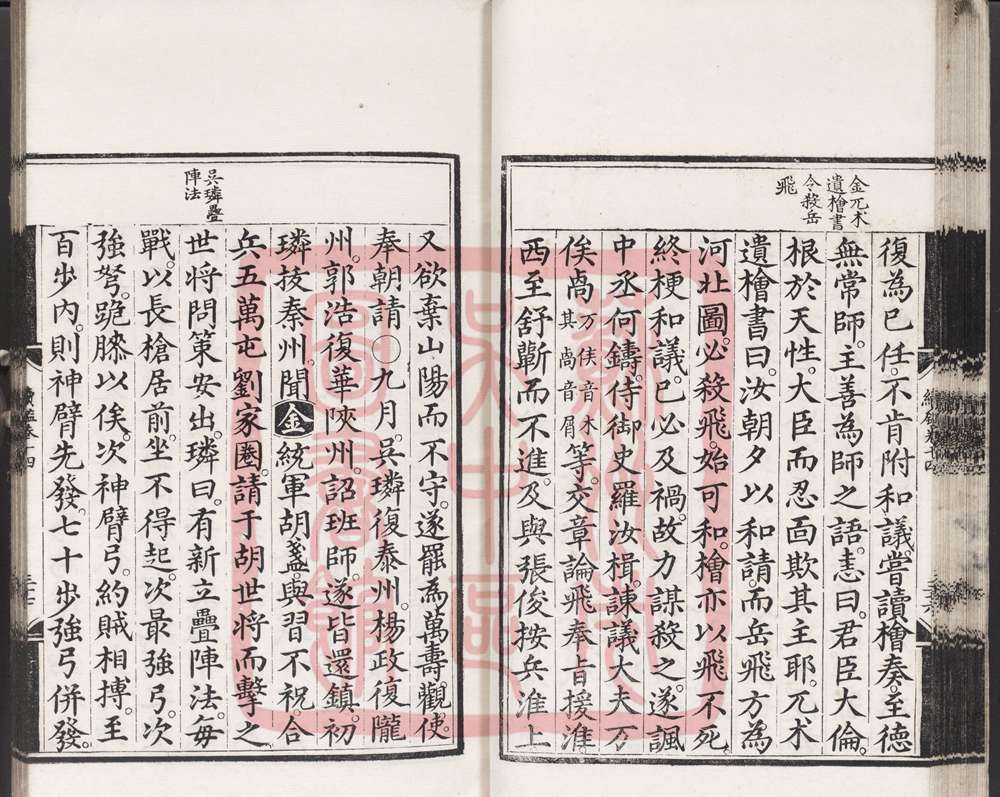 金兀朮
遺檜書
令殺岳
飛
復為己任。不肯附和議。嘗讀檜奏。至德
無常師。主善為師之語。恚曰。君臣大倫。
根於天性。大臣而忍面欺其主耶。兀朮
遺檜書曰。汝朝夕以和請。而岳飛方為
河北圖。必殺飛。始可和。檜亦以飛不死。
終梗和議。己必及禍。故力謀殺之。遂諷
中丞何鑄。侍御史羅汝楫。諫議大夫万
俟卨万俟音木其卨音屑等。交章論飛奉旨援淮
西。至舒蘄而不進。及與張俊按兵淮上。
吳璘疊
陣法
又欲棄山陽而不守。遂罷為萬壽觀使。
奉朝請〇九月。吳璘復泰州。楊政復隴
州。郭浩復華陝州。詔班師。遂皆還鎮。初
璘拔秦州。聞金統軍胡盞。與習不祝。合
兵五萬屯劉家圈。請于胡世將而擊之。
世將問策安出。璘曰。有新立疊陣法。每
戰。以長槍居前。坐不得起。次最強弓。次
強弩。跪膝以俟。次神臂弓。約賊相搏。至
百步內。則神臂先發。七十步強弓併發。
蘇州
吳中區
圖書館